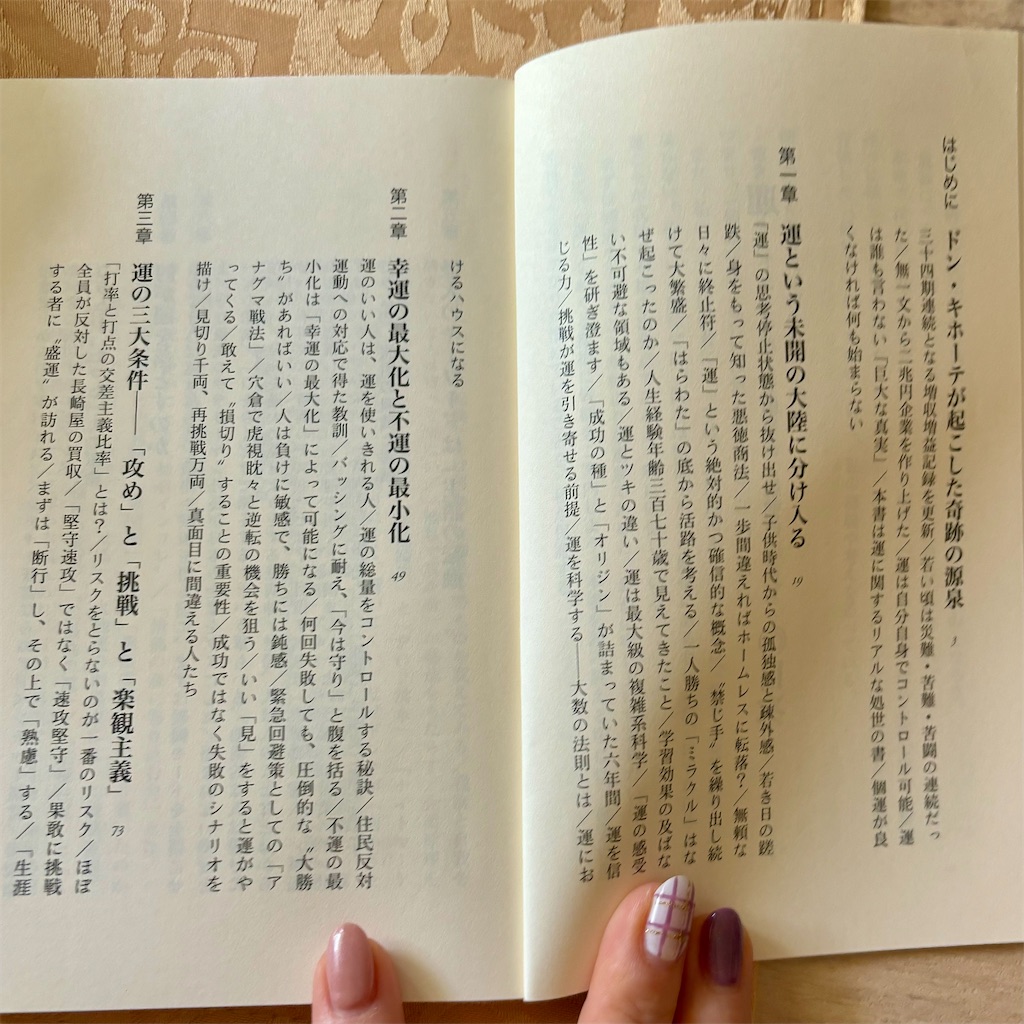 はじめに ドン・キホーテが起こした奇跡の源泉 3
三十四期連続となる増収増益記録を更新／若い頃は災難・苦難・苦闘の連続だっ
た／無一文から二兆円企業を作り上げた／運は自分自身でコントロール可能／運
は誰も言わない「巨大な真実」／本書は運に関するリアルな処世の書／個運が良
くなければ何も始まらない
第一章 運という未開の大陸に分け入る 19
「運」の思考停止状態から抜け出せ／子供時代からの孤独感と疎外感／若き日の蹉
跌／身をもって知った悪徳商法／一歩間違えればホームレスに転落？／無頼な
日々に終止符／「運」という絶対的かつ確信的な概念／〝禁じ手〟を繰り出し続
けて大繁盛／「はらわた」の底から活路を考える／一人勝ちの「ミラクル」はな
ぜ起こったのか／人生経験年齢三百七十歳で見えてきたこと／学習効果の及ばな
い不可避な領域もある／運とツキの違い／運は最大級の複雑系科学／「運の感受
性」を研ぎ澄ます／「成功の種」と「オリジン」が詰まっていた六年間／運を信
じる力／挑戦が運を引き寄せる前提／運を科学する——大数の法則とは／運にお
けるハウスになる
第二章 幸運の最大化と不運の最小化 49
運のいい人は、運を使いきれる人／運の総量をコントロールする秘訣／住民反対
運動への対応で得た教訓／バッシングに耐え、「今は守り」と腹を括る／不運の最
小化は「幸運の最大化」によって可能になる／何回失敗しても、圧倒的な〝大勝
ち〟があればいい／人は負けに敏感で、勝ちには鈍感／緊急回避策としての「ア
ナグマ戦法」／穴倉で虎視眈々と逆転の機会を狙う／いい「見」をすると運がや
ってくる／敢えて〝損切り〟することの重要性／成功ではなく失敗のシナリオを
描け／見切り千両、再挑戦万両／真面目に間違える人たち
第三章 運の三大条件——「攻め」と「挑戦」と「楽観主義」 73
「打率と打点の交差主義比率」とは？／リスクをとらないのが一番のリスク／ほぼ
全員が反対した長崎屋の買収／「堅守速攻」ではなく「速攻堅守」／果敢に挑戦
する者に〝盛運〟が訪れる／まずは「断行」し、その上で「熟慮」する／「生涯